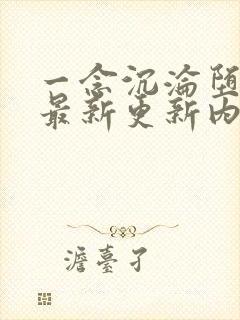 一念沉沦堕
最新更新内
澹臺子